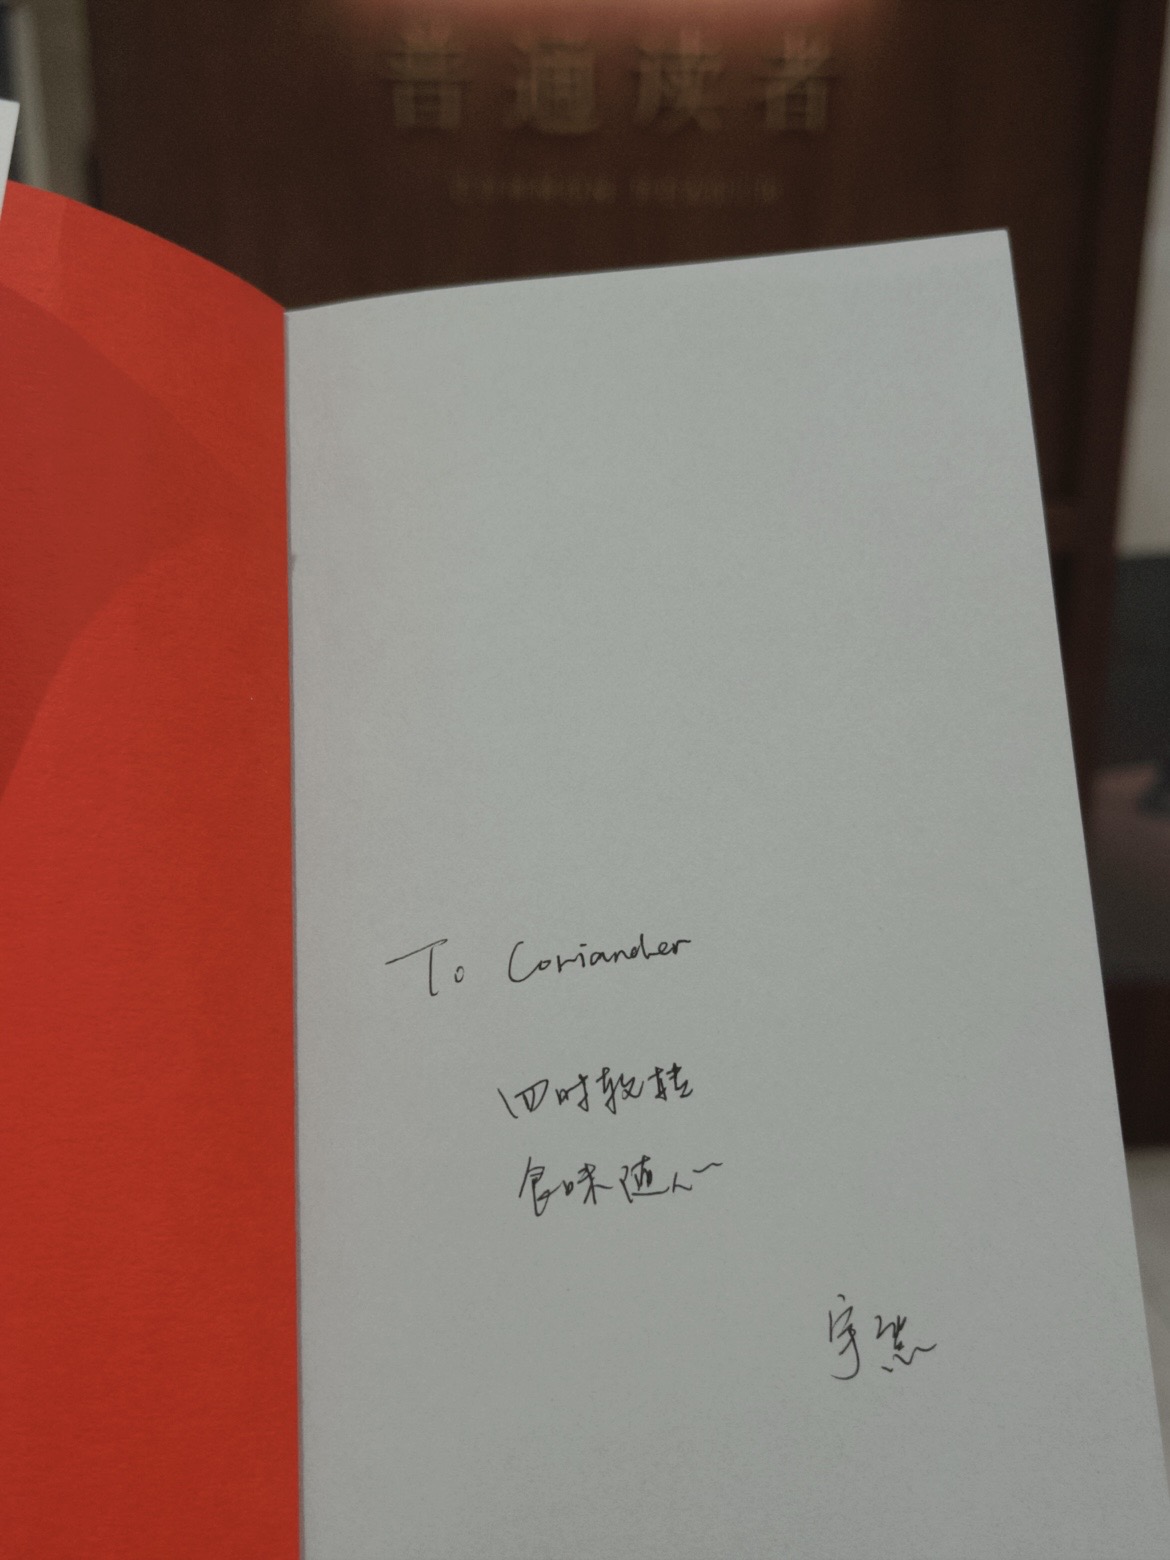 普通读者
To Coriander
四时轮转
食味随人
宇然